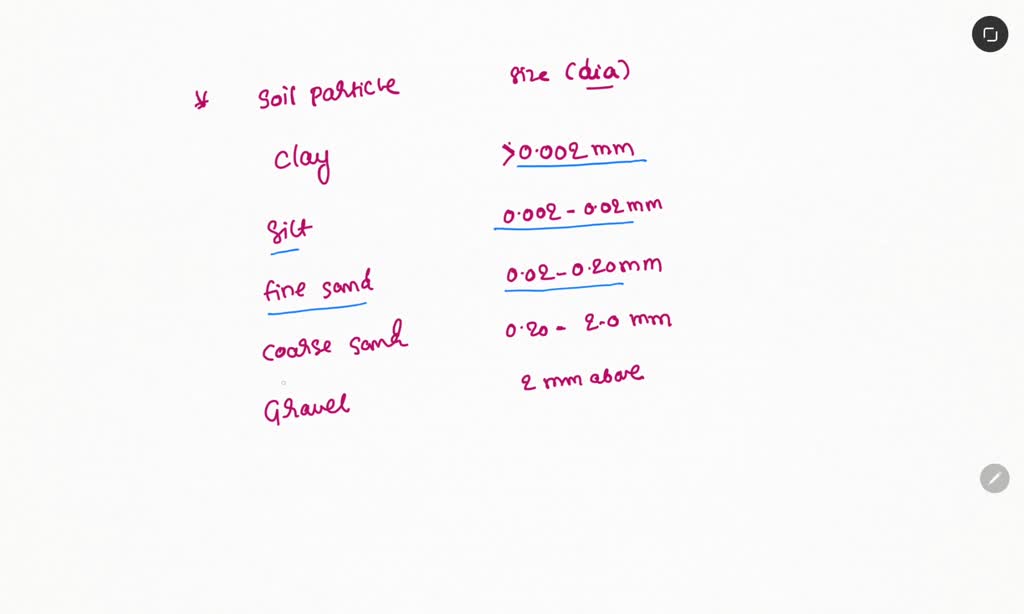 * Soil particle size (dia)
clay >0.002 mm
silt 0.002 - 0.02 mm
fine sand 0.02 - 0.20 mm
coarse sand 0.20 - 2.0 mm
Gravel 2 mm above